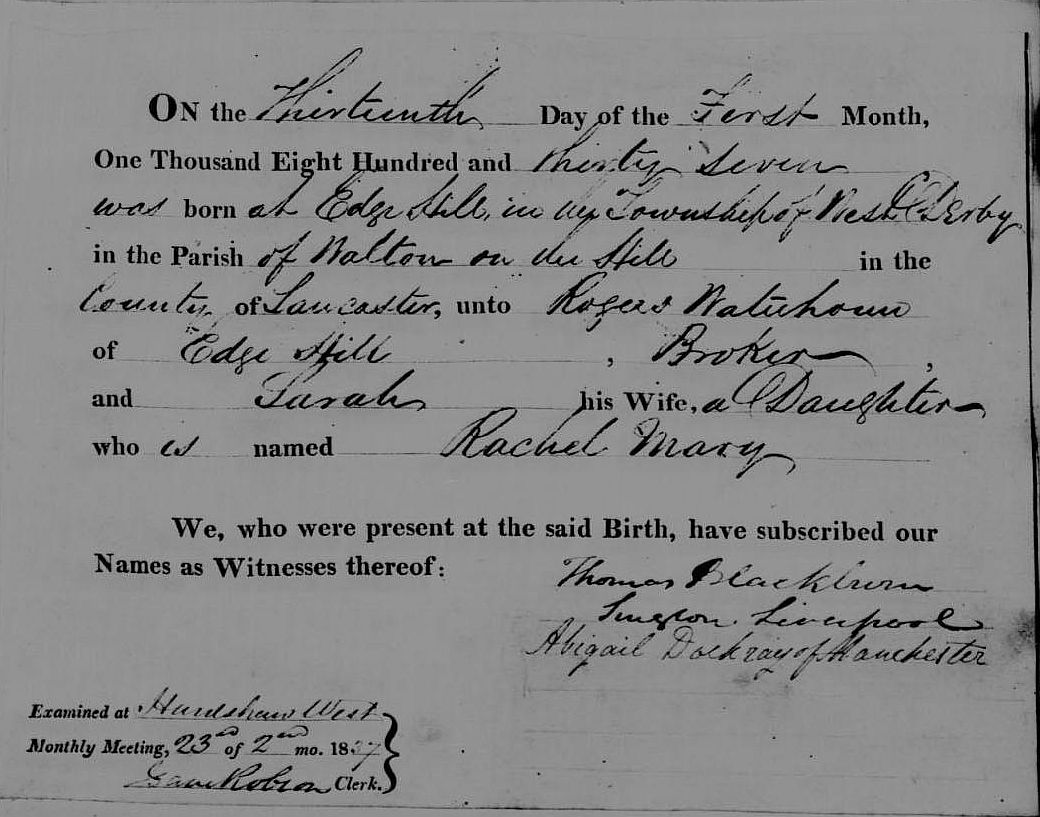 ON the Thirteenth Day of the First Month,
One Thousand Eight Hundred and thirty Seven
was born at Edge Hill, in the Township of West Derby
in the Parish of Walton on the Hill in the
County of Lancaster, unto Rogers Waterhouse
of Edge Hill, Broker,
and Sarah his Wife, a Daughter
who is named Rachel Mary
We, who were present at the said Birth, have subscribed our
Names as Witnesses thereof:
Thomas Blackburn
Surgeon. Liverpool
Abigail Dockray of Manchester
Examined at Hardshaw West
Monthly Meeting, 23rd of 2nd mo. 1837
Robson Clerk.